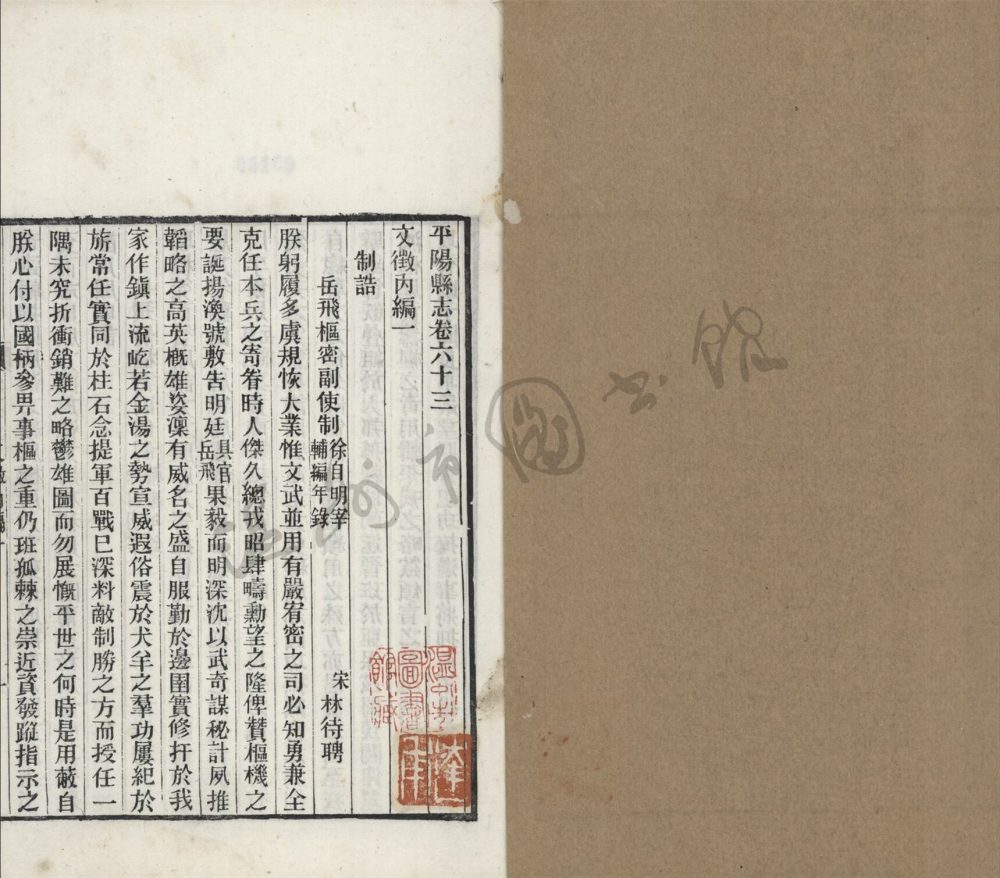 平陽縣志卷六十三
文徵內編一
制誥
岳飛樞密副使制 徐自明宰輔編年錄 宋 林待聘
朕躬履多虞規恢大業惟文武並用有嚴宥密之司必知勇兼全
克任本兵之寄眷時人傑久總戎昭肆疇勳望之隆俾贊樞機之
要誕揚渙號敷告明廷具官岳飛果毅而明深沈以武奇謀秘計夙推
韜略之高英概雄姿凜有威名之盛自服勤於邊圉實修扞於我
家作鎭上流屹若金湯之勢宣威遐俗震於犬羊之羣功屢紀於
旂常任實同於柱石念提軍百戰已深料敵制勝之方而授任一
隅未究折衝銷難之略鬱雄圖而勿展慨平世之何時是用蔽自
朕心付以國柄參畀事樞之重仍班孤棘之崇近資發蹤指示之
溫州市圖書館
溫州市圖書館藏